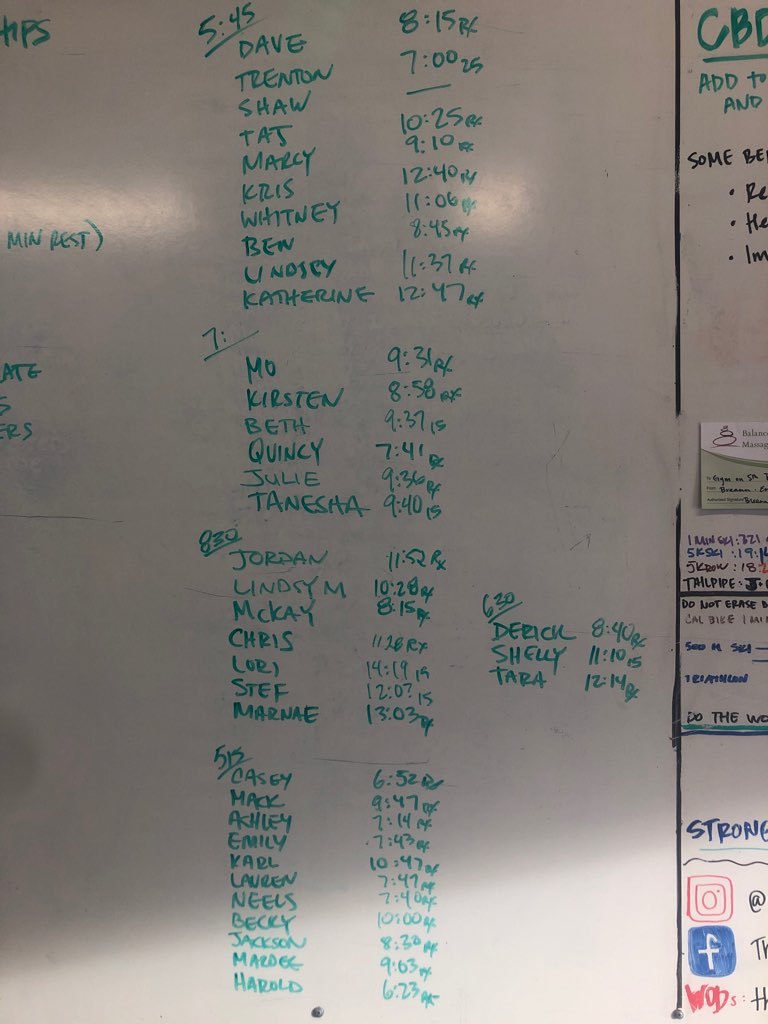 HIPS
MIN REST)
ATE
S
ERS
5:45
DAVE 8:15 RX
TRENTON 7:00 25
SHAW —
TAJ 10:25 RX
MARCY 9:10 RX
KRIS 12:40 RX
WHITNEY 11:06 RX
BEN 8:45 RX
LINDSEY 11:37 RX
KATHERINE 12:47 RX
7:
MO 9:31 RX
KIRSTEN 8:58 RX
BETH 9:37 15
QUINCY 7:41 RX
JULIE 9:36 RX
TANESHA 9:40 15
830
JORDAN 11:52 RX
LINDSY M 10:28 RX
MCKAY 8:15 RX
CHRIS 11 28 RX
LORI 14:19 15
STEF 12:0? 15
MARNAE 13:03 RX
630
DERICK 8:40 RX
SHELLY 11:10 15
TARA 12:14 RX
515
CASEY 6:52 RX
MACK 9:47 RX
ASHLEY 7:14 RX
EMILY 7:43 RX
KARL 10:47 RX
LAUREN 7:47 RX
NEELS 7:40 RX
BECKY 10:00 RX
JACKSON 8:30 RX
MARDEE 9:03 RX
HAROLD 6:23 RX
CBD
ADD TO
AND
SOME BE
• Re
• He
• Im
Balance
Massag
To Gym on 5A
From
Authorized Signature
1 MIN SKI: 321
5K SKI: 19:1
5K ROW: 18:2
TAILPIPE: J
DO NOT ERASE
CAL BIKE 1 MI
500 M SKI
TRIATHLON
DO THE WO
STRONG
@
f Th
WODs: th